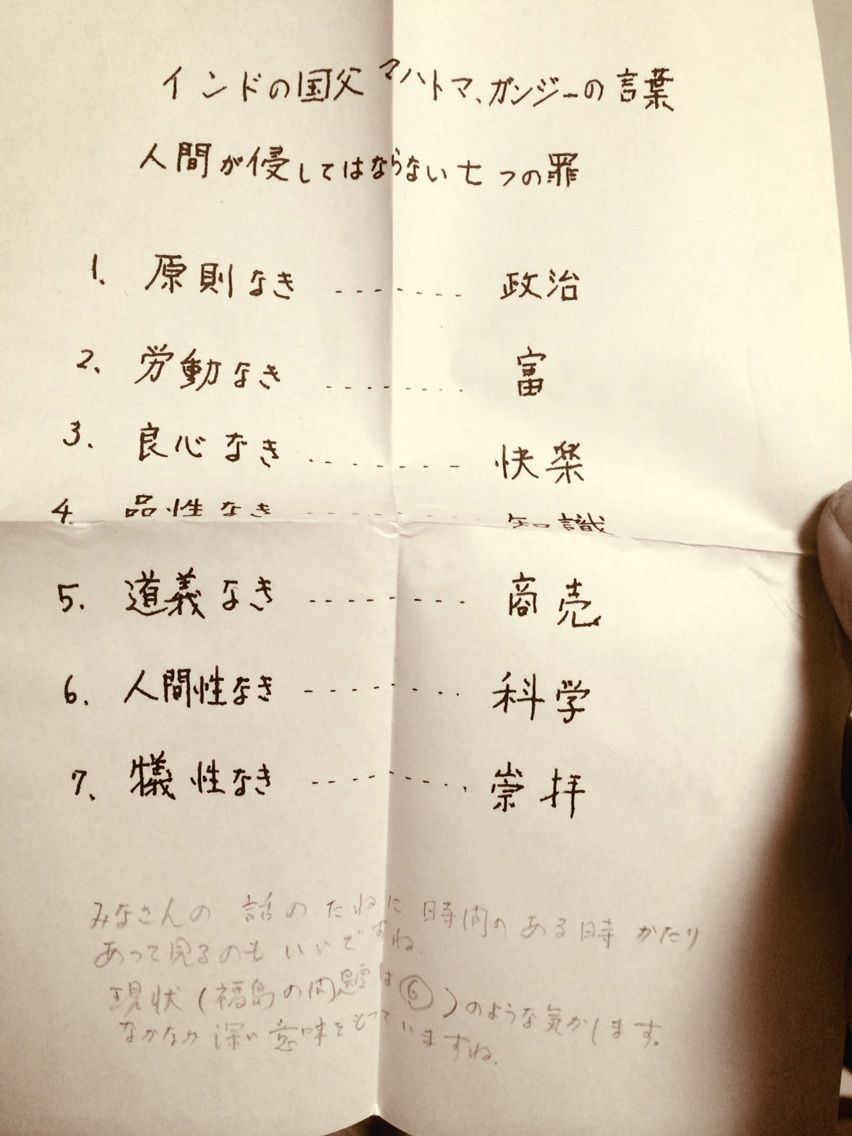 インドの国父 マハトマ、ガンジーの言葉
人間が侵してはならない七つの罪
1. 原則なき ......... 政治
2. 労動なき ........ 富
3. 良心なき ......... 快楽
4. 品性なき 知識
5. 道義なき ......... 商売
6. 人間性なき ......... 科学
7. 犠性なき ......... 崇拝
みなさんの 話のたねに 時間のある時 かたり
あって見るのもいいですね.
現状(福島の問題は⑥)のような気がします.
なかなか深い意味をもっていますね.